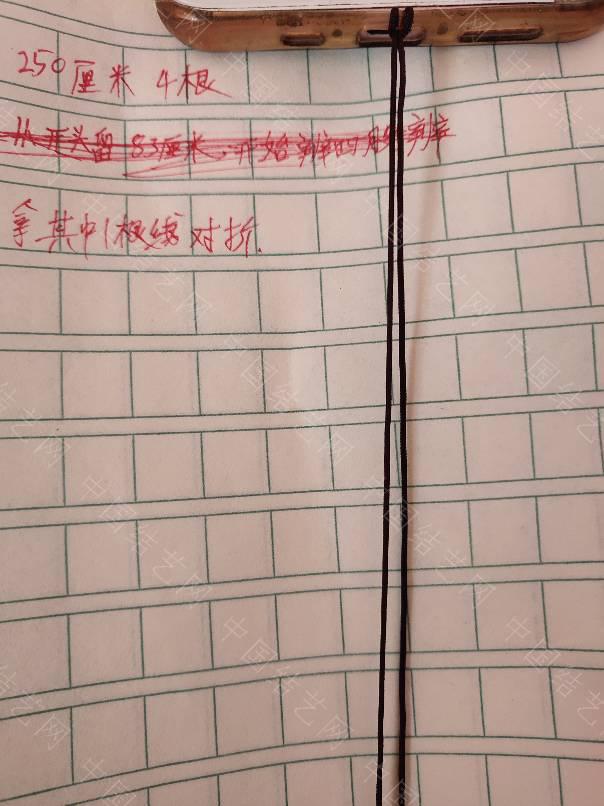 250厘米 4根
从开头留 83厘米.开始
拿其中1根线对折.
中国结艺网